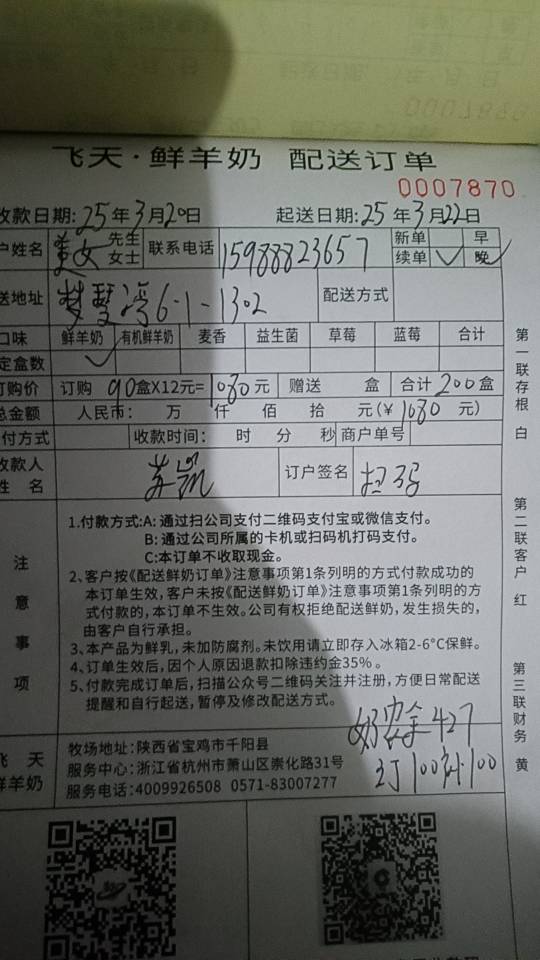 飞天·鲜羊奶 配送订单
0007870
收款日期:25年3月20日 起送日期:25年3月22日
户姓名 美女 先生 女士 联系电话 15988823657 新单 早
续单 ✓ 晚 ✓
送地址 梦琴湾6-1-1302 配送方式
口味 鲜羊奶 有机鲜羊奶 麦香 益生菌 草莓 蓝莓 合计
定盒数 ✓
订购价 订购 90盒X12元=1080元 赠送 盒 合计200盒
总金额 人民币: 万 仟 佰 拾 元(¥1080元)
付方式 收款时间: 时 分 秒 商户单号
收款人姓名 苏凯 订户签名 扫码
注意事项
1.付款方式:A: 通过扫公司支付二维码支付宝或微信支付。
B: 通过公司所属的卡机或扫码机打码支付。
C:本订单不收取现金。
2、客户按《配送鲜奶订单》注意事项第1条列明的方式付款成功的
本订单生效,客户未按《配送鲜奶订单》注意事项第1条列明的方
式付款的,本订单不生效。公司有权拒绝配送鲜奶,发生损失的,
由客户自行承担。
3、本产品为鲜乳,未加防腐剂。未饮用请立即存入冰箱2-6°C保鲜。
4、订单生效后,因个人原因退款扣除违约金35%。
5、付款完成订单后,扫描公众号二维码关注并注册,方便日常配送
提醒和自行起送,暂停及修改配送方式。
奶 余427
订100补100
飞天
鲜羊奶
牧场地址:陕西省宝鸡市千阳县
服务中心:浙江省杭州市萧山区崇化路31号
服务电话:4009926508 0571-83007277
第一联存根 白
第二联客户 红
第三联财务 黄